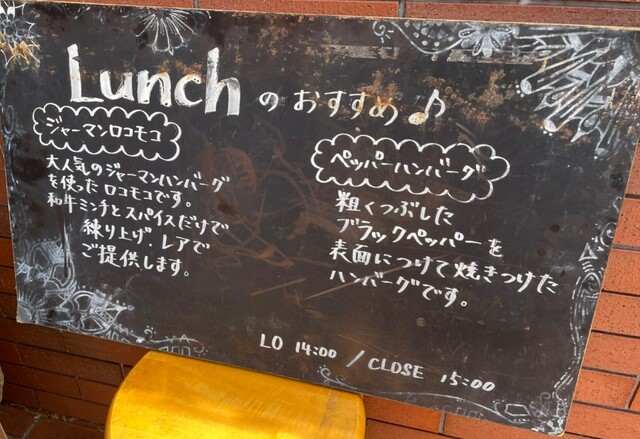 Lunch のおすすめ♪
ジャーマンロコモコ
大人気のジャーマンハンバーグ
を使ったロコモコです。
和牛ミンチとスパイスだけで
練り上げ、レアで
ご提供します。
ペッパーハンバーグ
粗くつぶした
ブラックペッパーを
表面につけて焼きつけた
ハンバーグです。
LO 14:00 / CLOSE 15:00